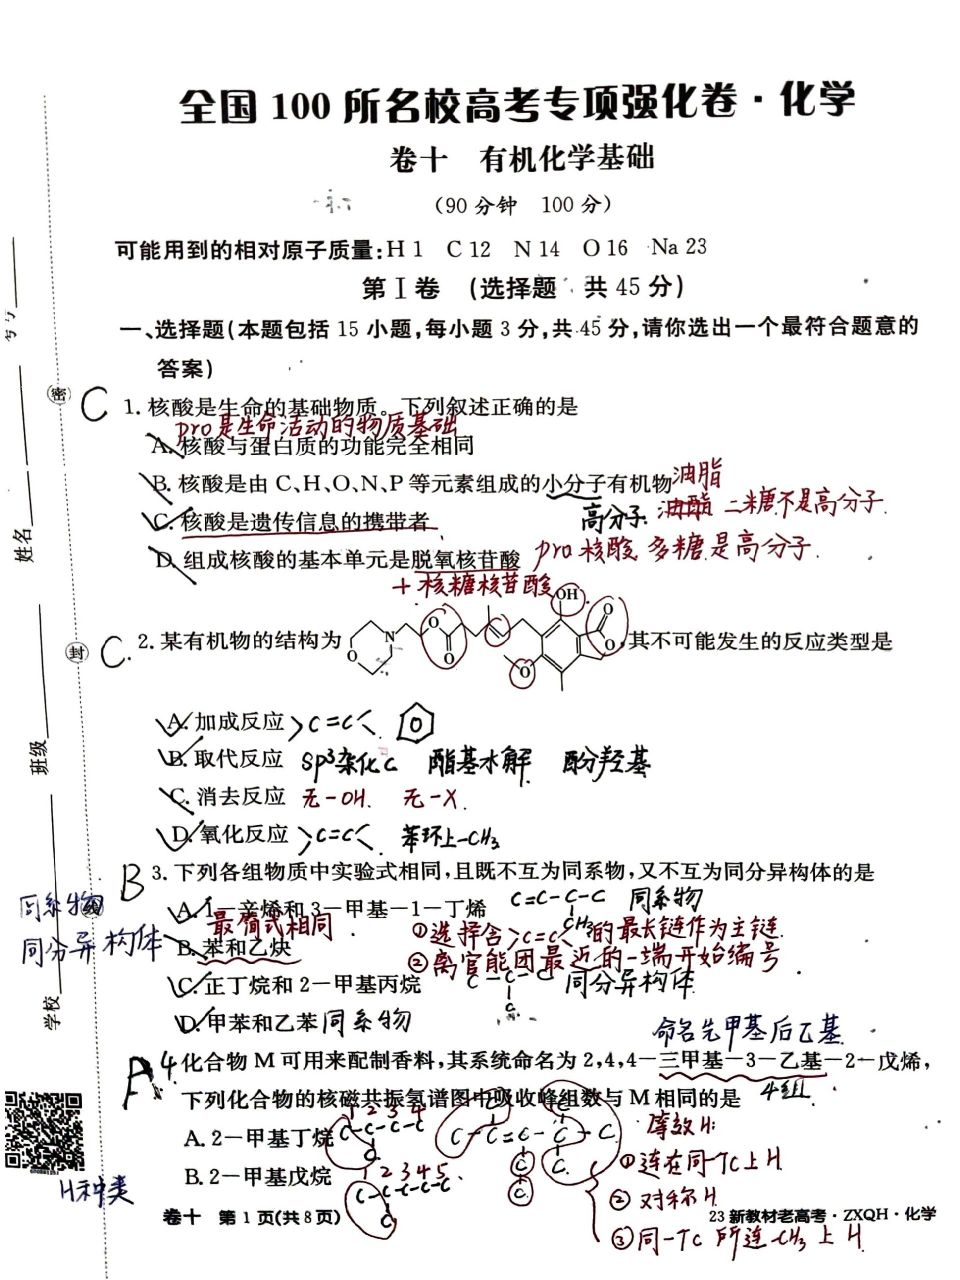 全国 100 所名校高考专项强化卷·化学
卷十 有机化学基础
(90 分钟 100 分)
可能用到的相对原子质量:H 1 C 12 N 14 O 16 Na 23
第Ⅰ卷 (选择题 共 45 分)
一、选择题(本题包括 15 小题,每小题 3 分,共 45 分,请你选出一个最符合题意的
答案)
密
C 1. 核酸是生命的基础物质。下列叙述正确的是
pro是生命活动的物质基础
A. 核酸与蛋白质的功能完全相同
B. 核酸是由 C、H、O、N、P 等元素组成的小分子有机物 油脂
C. 核酸是遗传信息的携带者 高分子. 油酯 二糖不是高分子.
D. 组成核酸的基本单元是脱氧核苷酸 pro 核酸 多糖是高分子.
+ 核糖核苷酸
姓名
封
C. 2. 某有机物的结构为 O N O O OH O O O ,其不可能发生的反应类型是
A. 加成反应 >C=C<
B. 取代反应 sp³杂化C 酯基水解 酚羟基
班级
C. 消去反应 无-OH. 无-X.
D. 氧化反应 >C=C< 苯环上-CH₃
B 3. 下列各组物质中实验式相同,且既不互为同系物,又不互为同分异构体的是
同系物
线
A. 1-辛烯和 3-甲基-1-丁烯 C=C-C-C 同系物
CH₃
最简式相同 ①选择含>C=C<的最长链作为主链.
同分异构体
B. 苯和乙炔 ②离官能团最近的一端开始编号
C. 正丁烷和 2-甲基丙烷 C-C-C 同分异构体
C
学校
D. 甲苯和乙苯 同系物
命名先甲基后乙基
A 4. 化合物 M 可用来配制香料,其系统命名为 2,4,4-三甲基-3-乙基-2-戊烯,
下列化合物的核磁共振氢谱图中吸收峰组数与 M 相同的是 4组
1 2 3 4
A. 2-甲基丁烷 C-C-C-C
C
C-C=C-C-C
等效H:
①连在同一C上H
B. 2-甲基戊烷 1 2 3 4 5
C-C-C-C-C
C
②对称H
H种类
卷十 第 1 页(共 8 页)
23 新教材老高考·ZXQH·化学
③同一C所连-CH₃上H